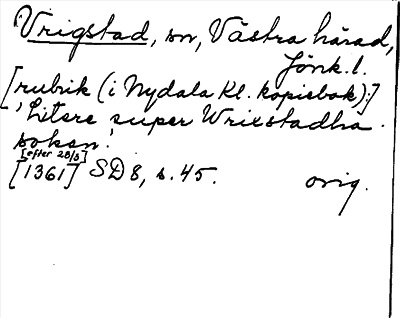 Vrigstad, sn, Västra härad,
Jönk.l.
[rubrik (i Nydala kl. kopiebok):]
'Litere super Wrixstadha
soksn.'
[efter 28/3]
[1361] SD 8, s. 45. orig.